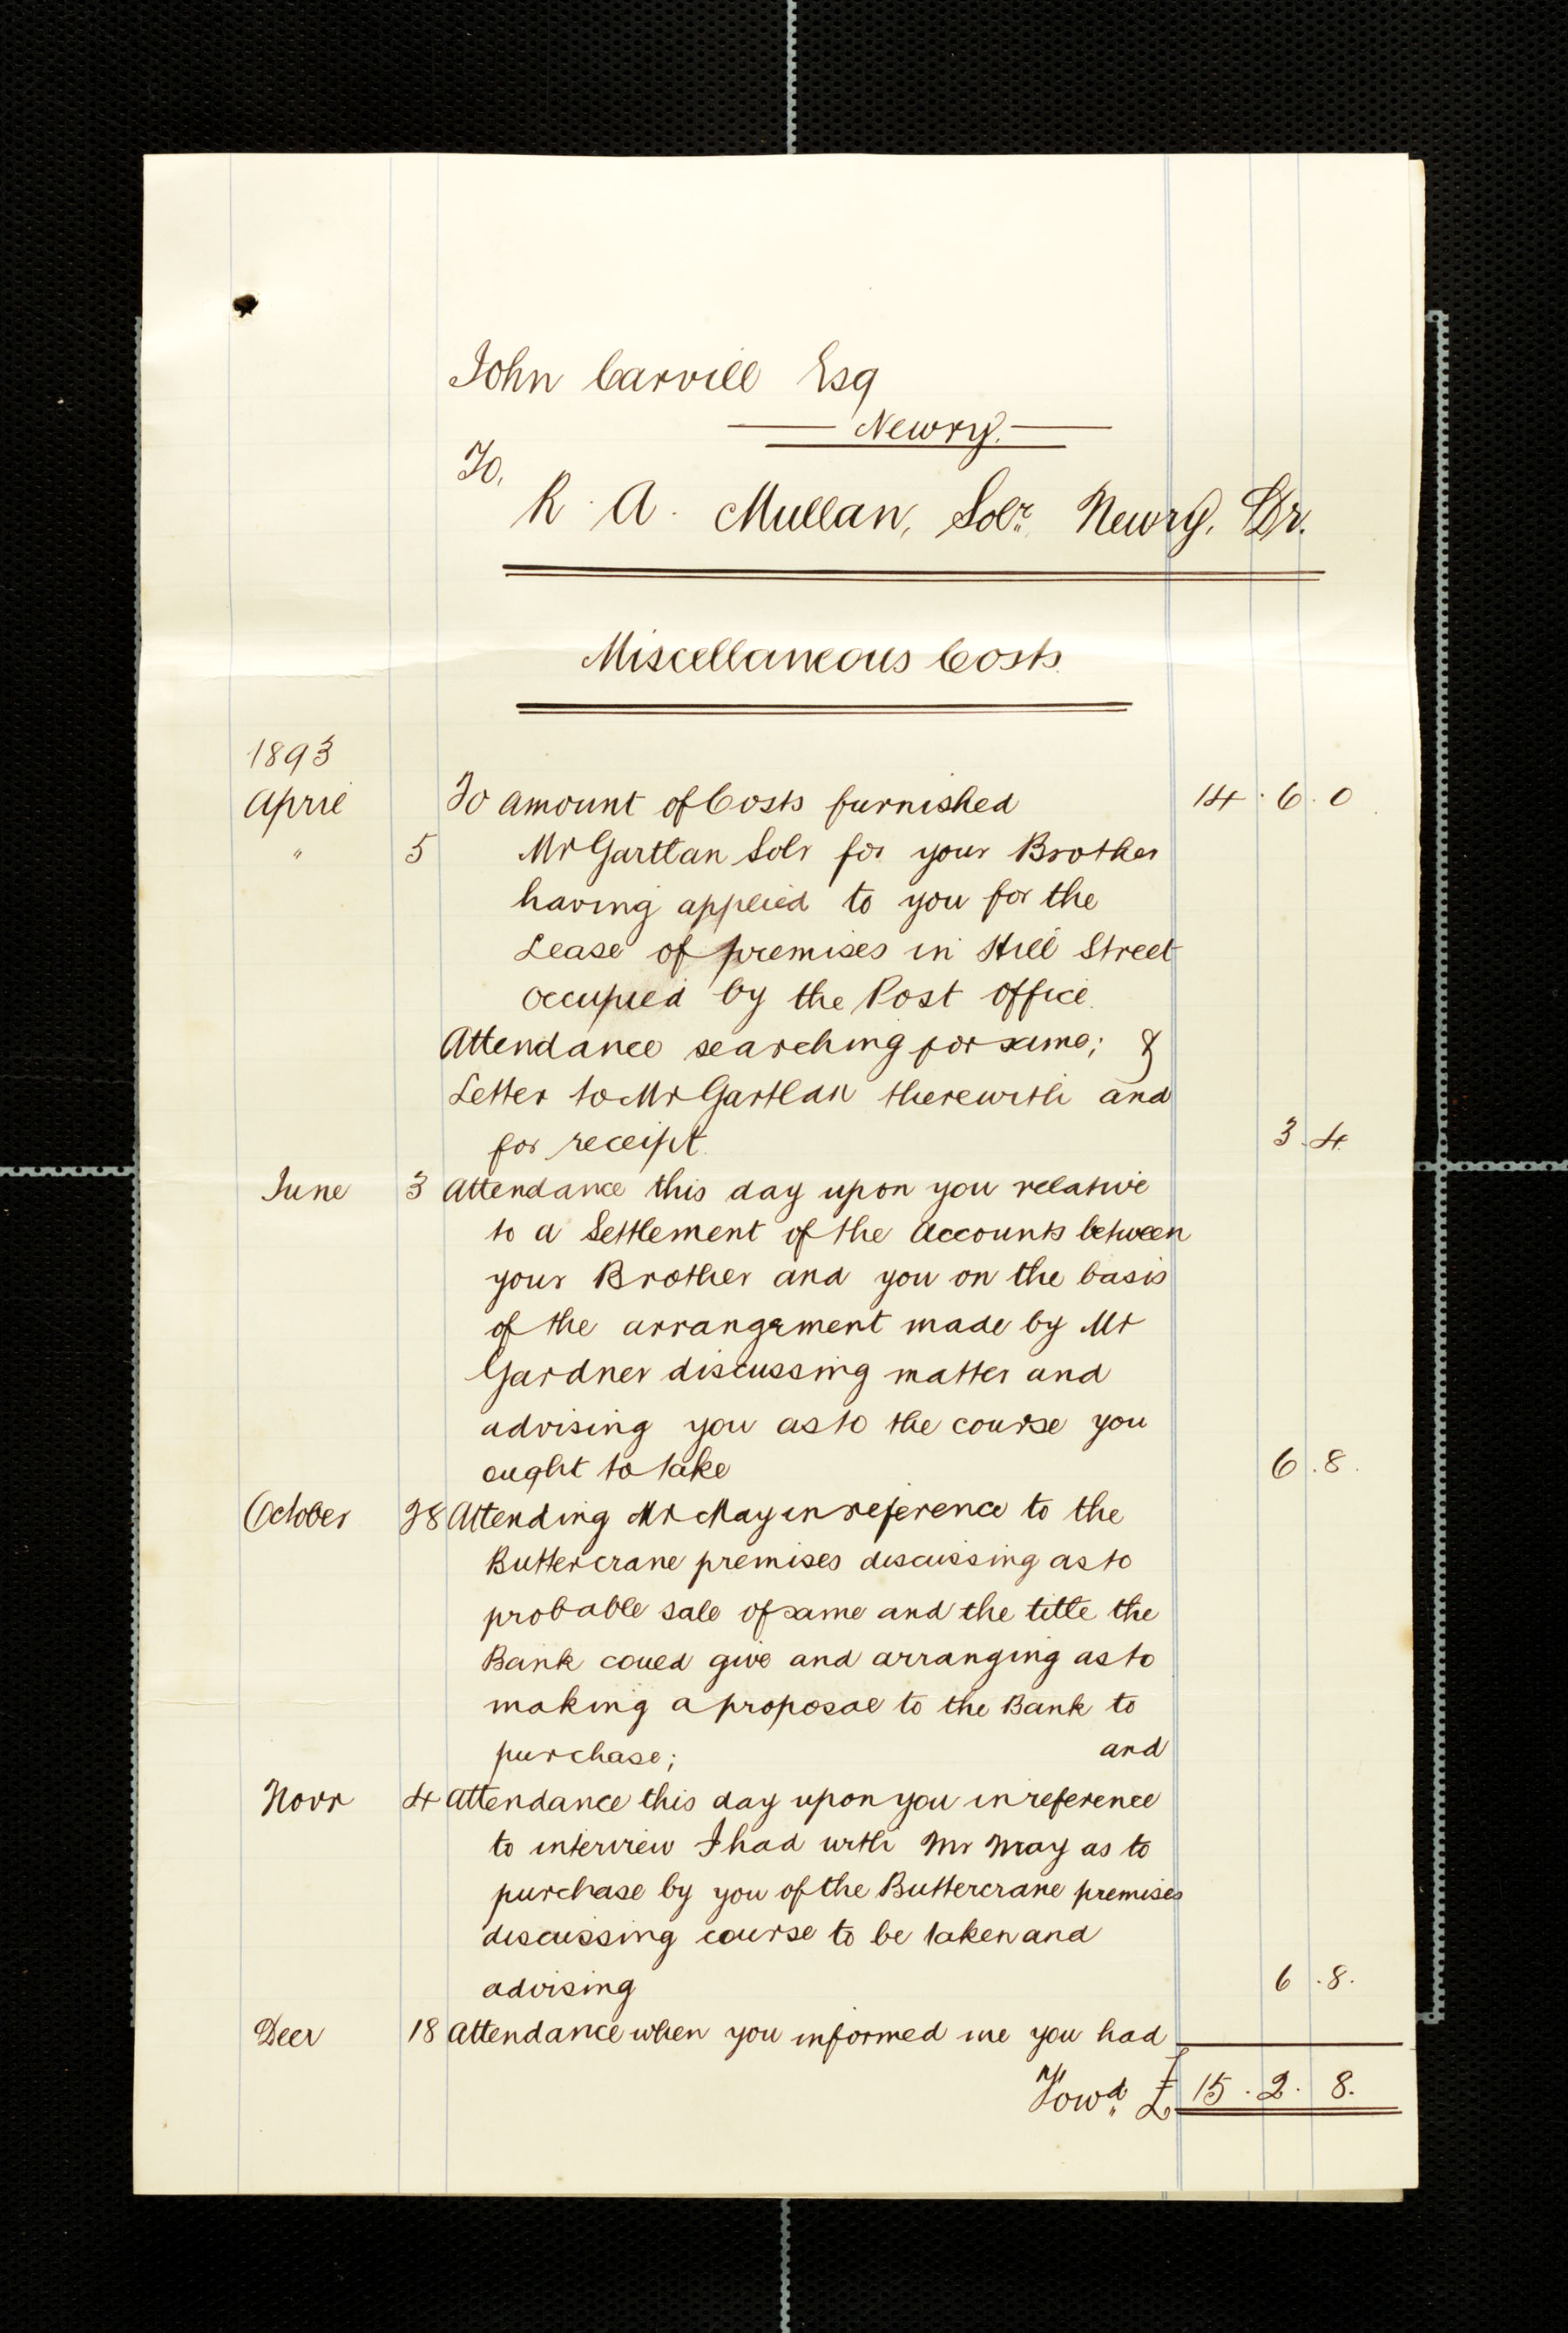 John Carvill Esq
Newry.
To,
R. A. Mullan, Solr. Newry, Dr.
Miscellaneous Costs.
1893
April To amount of Costs furnished 14 . 6 . 0
" 5 Mr Gartlan Solr for your Brother
having applied to you for the
Lease of premises in Hill Street
occupied by the Post Office.
Attendance searching for same; &
Letter to Mr Gartlan therewith and
for receipt. 3 . 4.
June 3 Attendance this day upon you relative
to a Settlement of the Accounts between
your Brother and you on the basis
of the arrangement made by Mr
Gardner discussing matter and
advising you as to the course you
ought to take 6 . 8.
October 28 Attending Mr May in reference to the
Buttercrane premises discussing as to
probable sale of same and the title the
Bank could give and arranging as to
making a proposal to the Bank to
purchase; and
Novr 4 Attendance this day upon you in reference
to interview I had with Mr May as to
purchase by you of the Buttercrane premises
discussing course to be taken and
advising 6 . 8.
Decr 18 Attendance when you informed me you had
Fowd. £ 15 . 2 . 8.